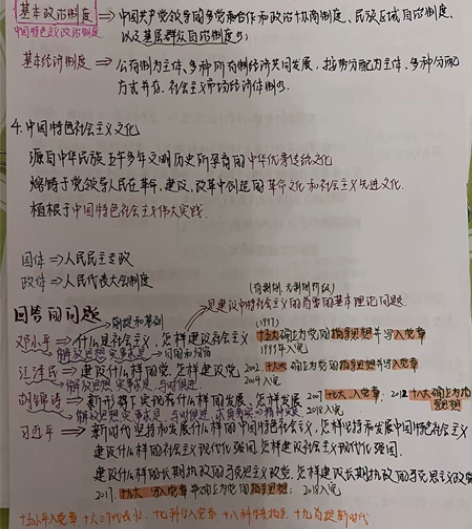 基本政治制度 ⇒ 中国共产党领导的多党合作和政治协商制度、民族区域自治制度、
中国特色政治制度
以及基层群众自治制度
基本经济制度 ⇒ 公有制为主体、多种所有制经济共同发展，按劳分配为主体、多种分配
方式并存、社会主义市场经济体制
4.中国特色社会主义文化
源自中华民族上下五千多年文明历史所孕育的中华优秀传统文化
熔铸于党领导人民在革命、建设、改革中创造的革命文化和社会主义先进文化.
植根于中国特色社会主义伟大实践
国体 ⇒ 人民民主专政
政体 ⇒ 人民代表大会制度
回答的问题
是建设中特社会主义的首要的基本理论问题
前提和基础
(1997)
邓小平 ⇒ 什么是社会主义，怎样建设社会主义 十五大确立为党的指导思想并写入党章
解放思想 实事求是 1999年入宪
江泽民 ⇒ 建设什么样的党，怎样建设党 2002. 十六大确立为党的指导思想并写入党章
解放思想 实事求是 与时俱进 2004入宪
胡锦涛 ⇒ 新形势下实现什么样的发展，怎样发展 2007 十七大，入党章； 2012 十八大确立为指导思想
解放思想 实事求是，与时俱进，求真务实 2018入宪
习近平 ⇒ 新时代坚持和发展什么样的中国特色社会主义，怎样坚持和发展中国特色社会主义
建设什么样的社会主义现代化强国，怎样建设社会主义现代化强国.
建设什么样的长期执政的马克思主义政党，怎样建设长期执政的马克思主义政党
2017. 十九大 写入党章 并确立为党的指导思想； 2018入宪
十五小平入党章 十六三个代表 十七科学入党章 十八科学 十九 新时代